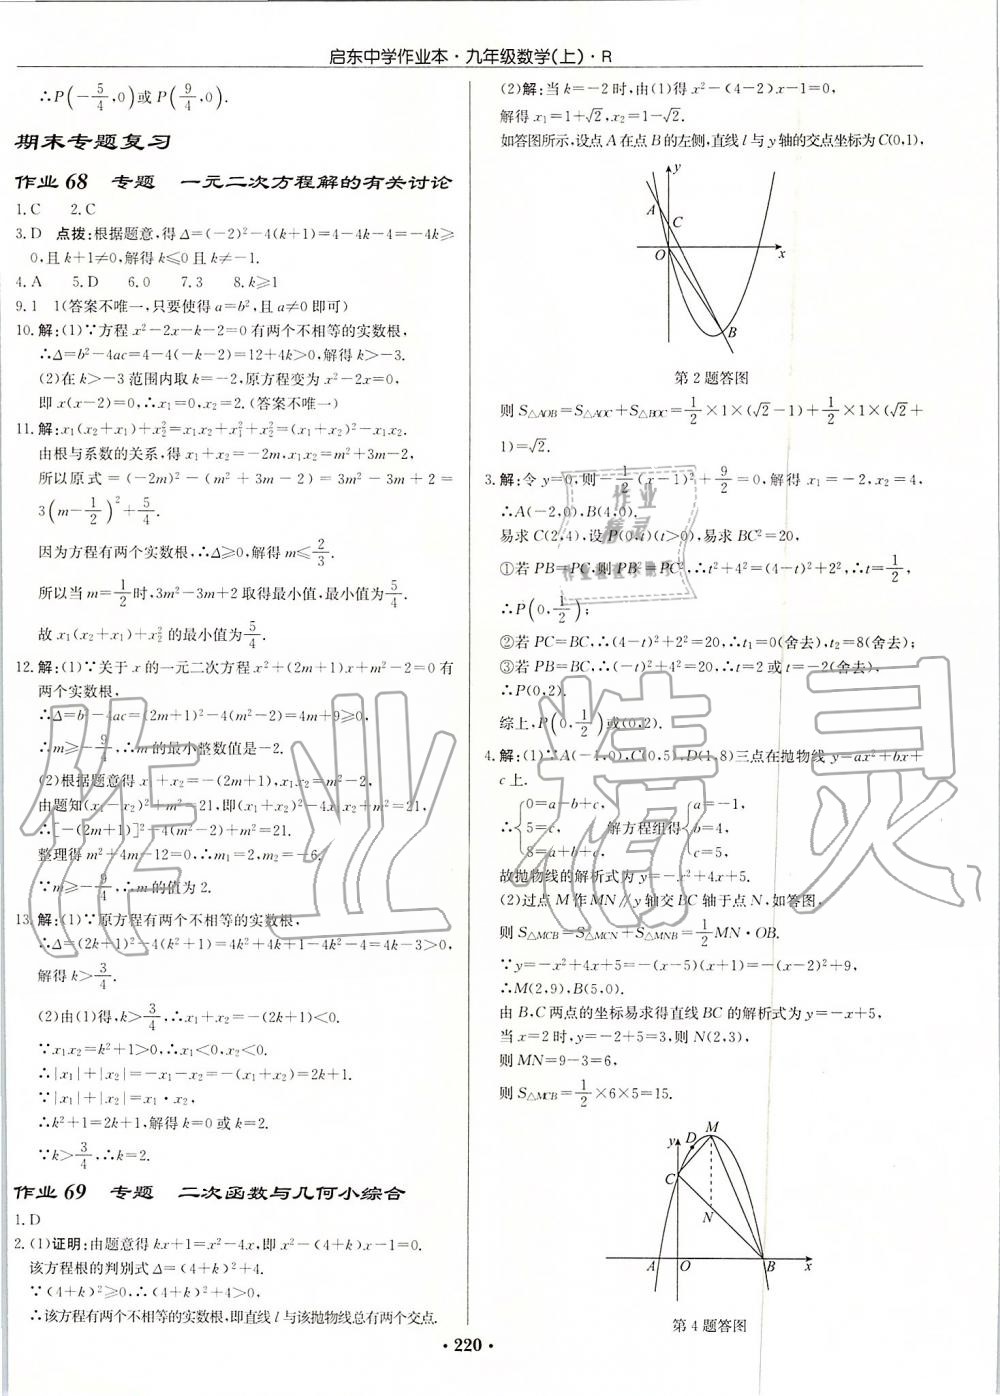 启东中学作业本·九年级数学(上)·R
∴P(-5/4,0)或P(9/4,0).
期末专题复习
作业68 专题 一元二次方程解的有关讨论
1.C 2.C
3.D 点拨:根据题意,得Δ=(-2)²-4(k+1)=4-4k-4=-4k≥
0,且k+1≠0,解得k≤0且k≠-1.
4.A 5.D 6.0 7.3 8.k≥1
9.1 1(答案不唯一,只要使得a=b²,且a≠0即可)
10.解:(1)∵方程x²-2x-k-2=0有两个不相等的实数根,
∴Δ=b²-4ac=4-4(-k-2)=12+4k>0,解得k>-3.
(2)在k>-3范围内取k=-2,原方程变为x²-2x=0,
即x(x-2)=0,∴x₁=0,x₂=2.(答案不唯一)
11.解:x₁(x₂+x₁)+x₂²=x₁x₂+x₁²+x₂²=(x₁+x₂)²-x₁x₂.
由根与系数的关系,得x₁+x₂=-2m,x₁x₂=m²+3m-2,
所以原式=(-2m)²-(m²+3m-2)=3m²-3m+2=
3(m-1/2)²+5/4.
因为方程有两个实数根,∴Δ≥0,解得m≤2/3.
所以当m=1/2时,3m²-3m+2取得最小值,最小值为5/4.
故x₁(x₂+x₁)+x₂²的最小值为5/4.
12.解:(1)∵关于x的一元二次方程x²+(2m+1)x+m²-2=0有
两个实数根,
∴Δ=b²-4ac=(2m+1)²-4(m²-2)=4m+9≥0,
∴m≥-9/4,∴m的最小整数值是-2.
(2)根据题意得x₁+x₂=-(2m+1),x₁x₂=m²-2.
由题知(x₁-x₂)²+m²=21,即(x₁+x₂)²-4x₁x₂+m²=21,
∴[-(2m+1)]²-4(m²-2)+m²=21.
整理得m²+4m-12=0,∴m₁=2,m₂=-6.
∵m≥-9/4,∴m的值为2.
13.解:(1)∵原方程有两个不相等的实数根,
∴Δ=(2k+1)²-4(k²+1)=4k²+4k+1-4k²-4=4k-3>0,
解得k>3/4.
(2)由(1)得,k>3/4,∴x₁+x₂=-(2k+1)<0.
∵x₁x₂=k²+1>0,∴x₁<0,x₂<0.
∴|x₁|+|x₂|=-x₁-x₂=-(x₁+x₂)=2k+1.
∵|x₁|+|x₂|=x₁·x₂,
∴k²+1=2k+1,解得k=0或k=2.
∵k>3/4,∴k=2.
作业69 专题 二次函数与几何小综合
1.D
2.(1)证明:由题意得kx+1=x²-4x,即x²-(4+k)x-1=0.
该方程根的判别式Δ=(4+k)²+4.
∵(4+k)²≥0,∴(4+k)²+4>0,
∴该方程有两个不相等的实数根,即直线l与该抛物线总有两个交点.
(2)解:当k=-2时,由(1)得x²-(4-2)x-1=0,
解得x₁=1+√2,x₂=1-√2.
如答图所示,设点A在点B的左侧,直线l与y轴的交点坐标为C(0,1),
y
A
C
O
x
B
第2题答图
则S△AOB=S△AOC+S△BOC=1/2×1×(√2-1)+1/2×1×(√2+
1)=√2.
3.解:令y=0,则-1/2(x-1)²+9/2=0,解得x₁=-2,x₂=4,
∴A(-2,0),B(4,0).
易求C(2,4),设P(0,t)(t>0),易求BC²=20,
①若PB=PC,则PB²=PC²,∴t²+4²=(4-t)²+2²,∴t=1/2,
∴P(0,1/2);
②若PC=BC,∴(4-t)²+2²=20,∴t₁=0(舍去),t₂=8(舍去);
③若PB=BC,∴(-t)²+4²=20,∴t=2或t=-2(舍去),
∴P(0,2).
综上,P(0,1/2)或(0,2).
4.解:(1)∵A(-1,0),C(0,5),D(1,8)三点在抛物线y=ax²+bx+
c上,
∴{0=a-b+c, 5=c, 8=a+b+c, 解方程组得{a=-1, b=4, c=5,
故抛物线的解析式为y=-x²+4x+5.
(2)过点M作MN∥y轴交BC轴于点N,如答图,
则S△MCB=S△MCN+S△MNB=1/2MN·OB.
∵y=-x²+4x+5=-(x-5)(x+1)=-(x-2)²+9,
∴M(2,9),B(5,0).
由B,C两点的坐标易求得直线BC的解析式为y=-x+5,
当x=2时,y=-2+5=3,则N(2,3),
则MN=9-3=6,
则S△MCB=1/2×6×5=15.
y
D
M
C
N
A
O
B
x
第4题答图
·220·
作业精灵
作业
精灵